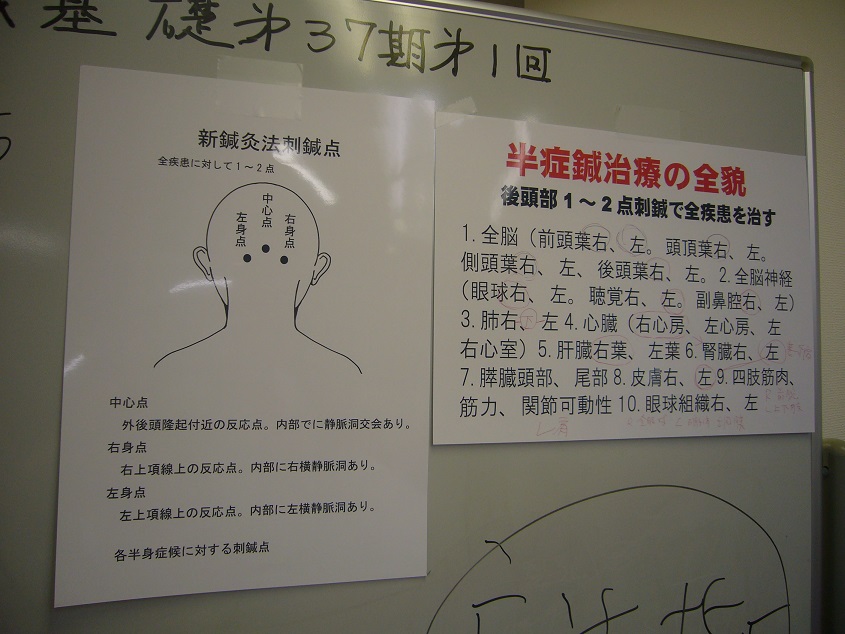 基礎第37期第1回
新鍼灸法刺鍼点
全疾患に対して1～2点
中心点
左身点
右身点
中心点
外後頭隆起付近の反応点。内部でに静脈洞交会あり。
右身点
右上項線上の反応点。内部に右横静脈洞あり。
左身点
左上項線上の反応点。内部に左横静脈洞あり。
各半身症候に対する刺鍼点
半症鍼治療の全貌
後頭部1～2点刺鍼で全疾患を治す
1. 全脳（前頭葉右、左。頭頂葉右、左。
側頭葉右、左、後頭葉右、左。2. 全脳神経
（眼球右、左。聴覚右、左。副鼻腔右、左）
3. 肺右、左 4. 心臓（右心房、左心房、左
右心室）5. 肝臓右葉、左葉 6. 腎臓右、左
7. 膵臓頭部、尾部 8. 皮膚右、左 9. 四肢筋肉、
筋力、関節可動性 10. 眼球組織右、左